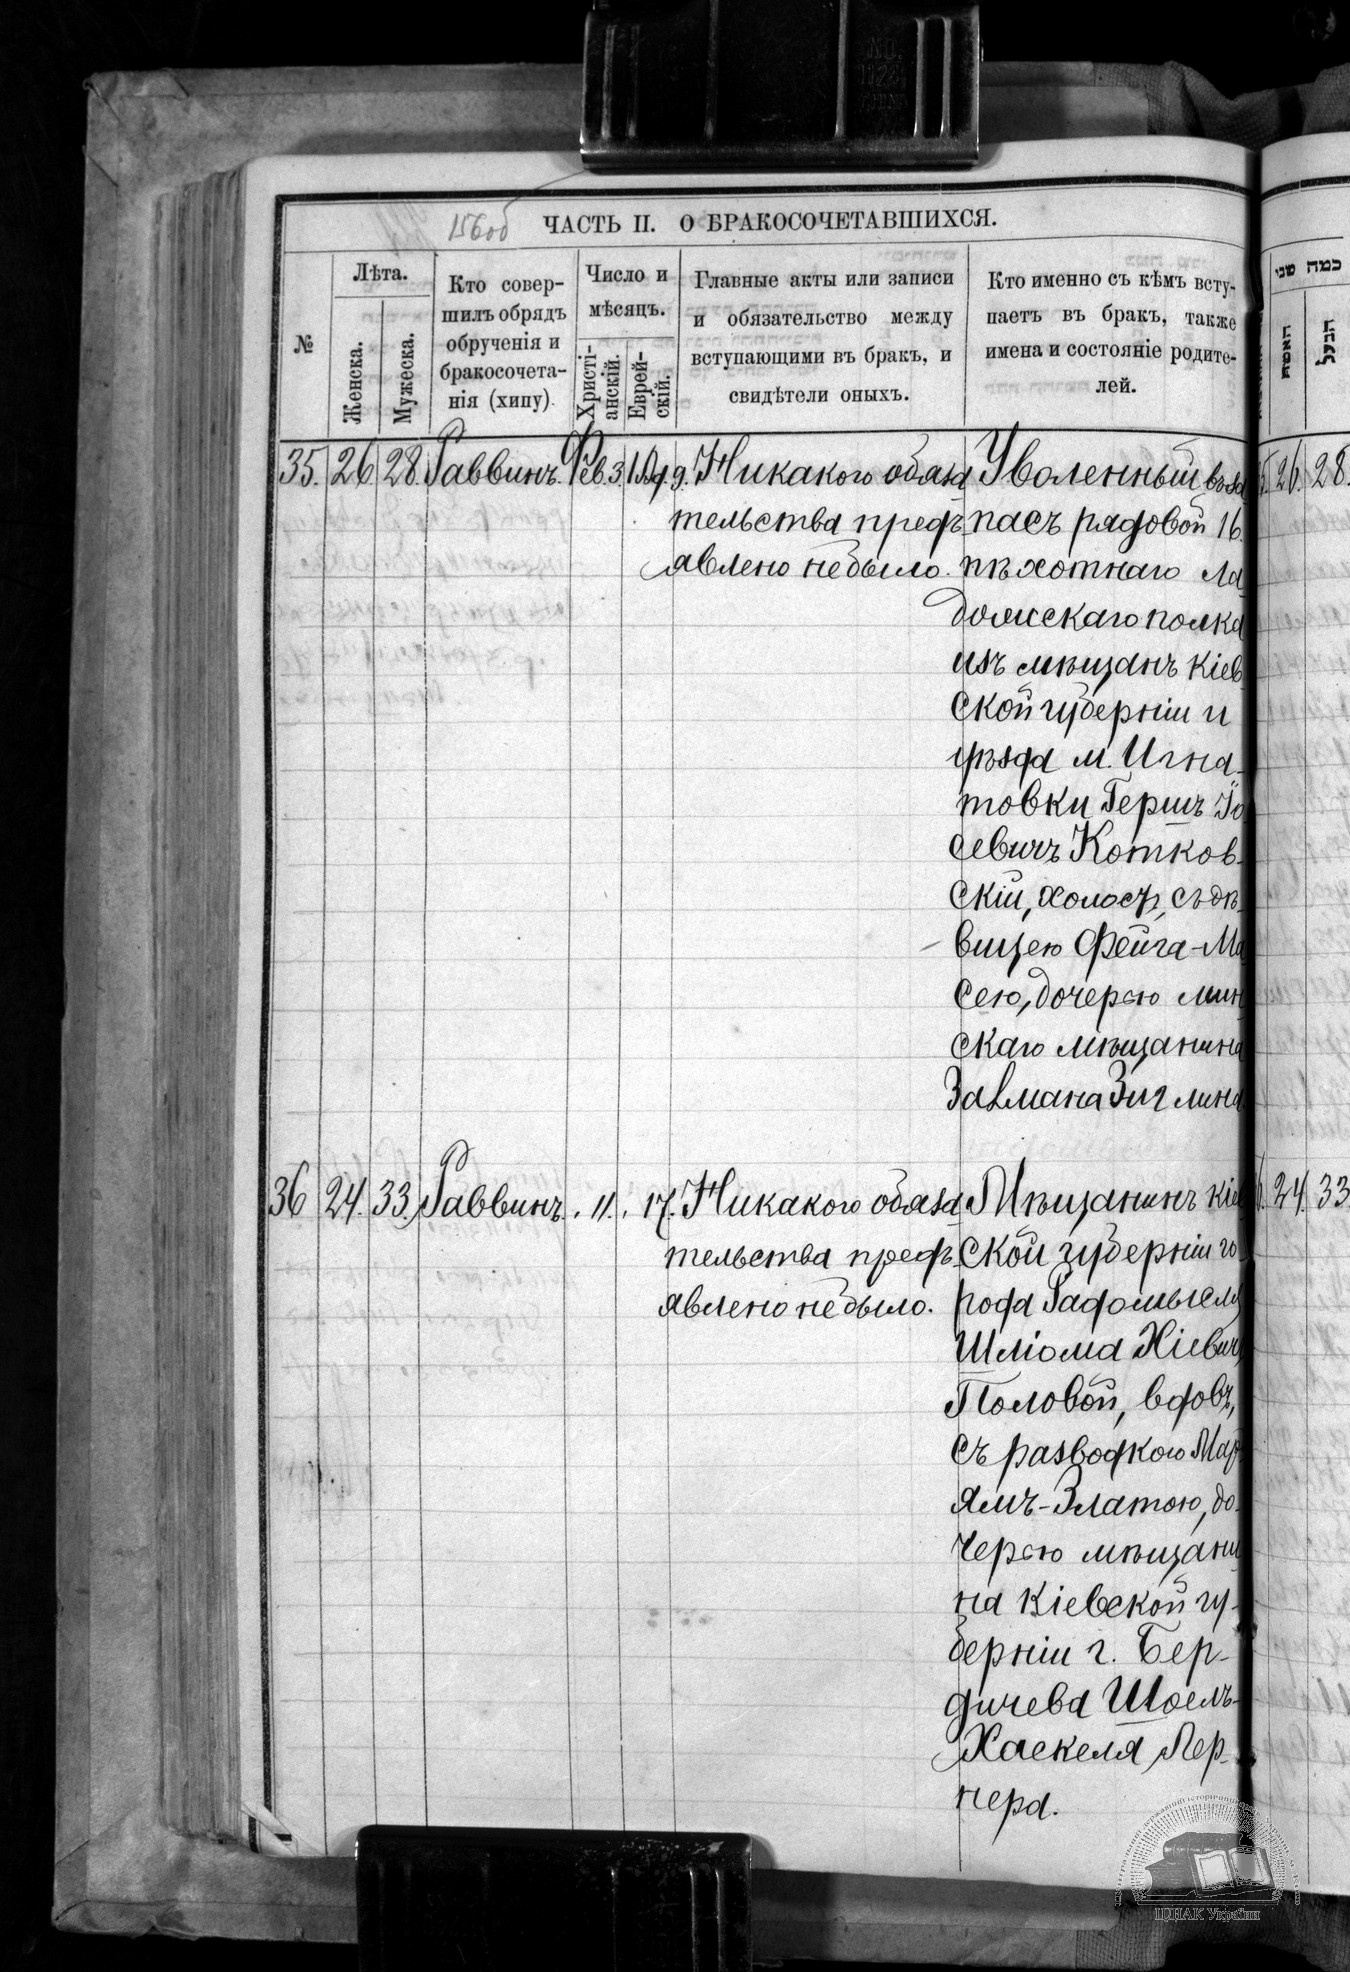 156об
ЧАСТЬ II. О БРАКОСОЧЕТАВШИХСЯ.
№
Лѣта.
Женска.
Мужеска.
Кто совер-
шилъ обрядъ
обрученія и
бракосочета-
нія (хипу).
Число и
мѣсяцъ.
Христі-
анскій.
Еврей-
скій.
Главные акты или записи
и обязательство между
вступающими въ бракъ, и
свидѣтели оныхъ.
Кто именно съ кѣмъ всту-
паетъ въ бракъ, также
имена и состояніе родите-
лей.
כמה שני
האשה
הבעל
35. 26 28. Раввинъ. Фев. 3. 9. Никакого обяза
тельства предъ
явлено небыло.
Уволенный въ за
пасъ рядовой 16.
пѣхотнаго Ла
дожскаго полка
изъ мѣщанъ Кіев
ской губерніи и
уѣзда м. Игна-
товки Гершъ Іо
севичъ Котков-
скій, холост, съ дѣ-
вицею Фейга-Ма
сею, дочерью мин
скаго мѣщанина
Залмана Зиглина
26. 28.
36 24. 33. Раввинъ. . 11. . 17. Никакого обяза
тельства предъ
явлено небыло.
Мѣщанинъ Кіев
ской губерніи го
рода Радомысля
Шліома Хіевич
Половой, вдовъ,
съ разводкою Мар
ямъ-Златою, до-
черью мѣщани
на Кіевской гу-
берніи г. Бер-
дичева Шоелъ-
Хаскеля Лер-
нера.
24. 33.
ЦДІАК України